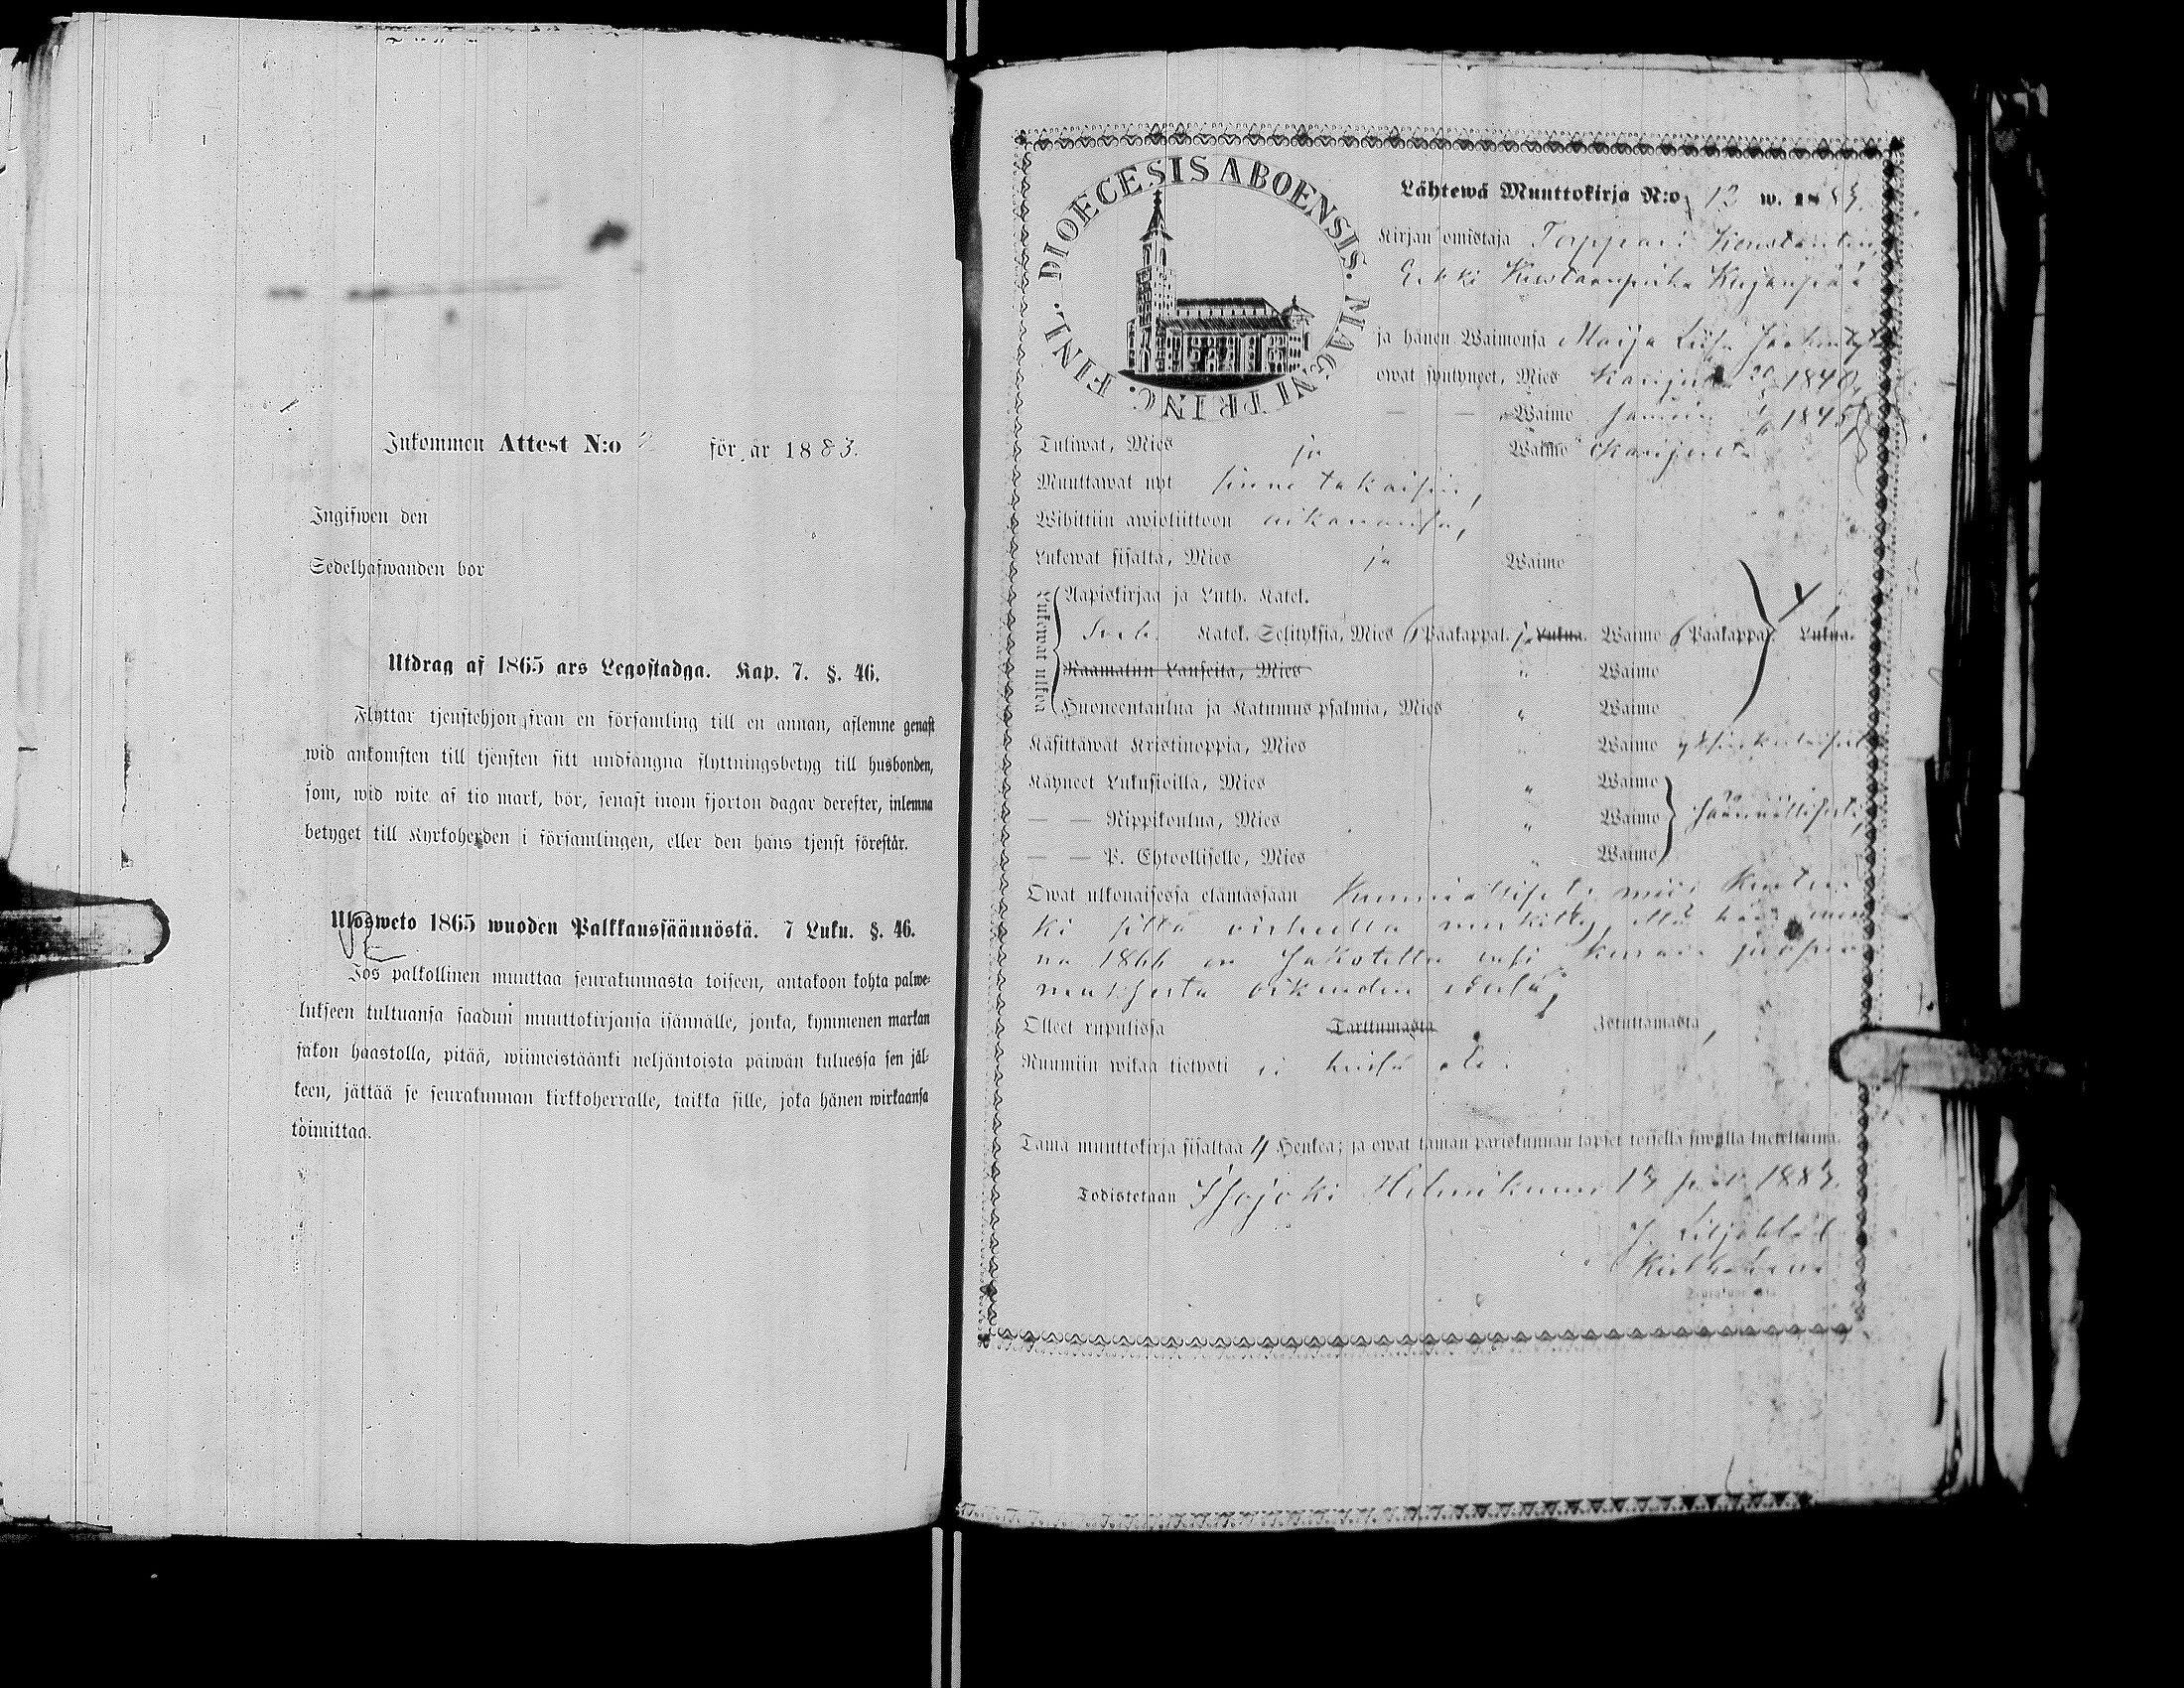 Inkommen Attest N:o för år 1883.
Ingifwen den
Sedelhafwanden bor
Utdrag af 1865 års Legostadga. Kap. 7. §. 46.
Flyttar tjenstehjon från en församling till en annan, aflemne genast
wid ankomsten till tjensten sitt undfångna flyttningsbetyg till husbonden,
som, wid wite af tio mark, bör, senast inom fjorton dagar derefter, inlemna
betyget till Kyrkoherden i församlingen, eller den hans tjenst förestår.
Ulosweto 1865 wuoden Palkkaussäännöstä. 7 Luku. §. 46.
Jos palkollinen muuttaa seurakunnasta toiseen, antakoon kohta palwe-
lukseen tultuansa saadun muuttokirjansa isännälle, jonka, kymmenen markan
sakon haastolla, pitää, wiimeistäänki neljäntoista päiwän kuluessa sen jäl-
keen, jättää se seurakunnan kirkkoherralle, taikka sille, joka hänen wirkaansa
toimittaa.
DIOECESIS ABOENSIS. MAGNI PRINC. FINL.
Lähtewä Muuttokirja N:o 12 w. 1883.
Kirjan omistaja Torppari Konstantin
Erkki Kustaanpoika
ja hänen Waimonsa Maija Liisa
owat syntyneet, Mies 1840,
— — Waimo 1845,
Tuliwat, Mies ja Waimo
Muuttawat nyt sinne takaisin,
Wihittiin awioliittoon aikanansa,
Lukewat sisältä, Mies ja Waimo
Lukewat ulkoa
Aapiskirjaa ja Luth. Katek.
Katek. Selityksiä, Mies 6 Pääkappal. ja Lukua. Waimo 6 Pääkappa. Lukua.
Raamatun Lauseita, Mies " Waimo
Huoneentaulua ja Katumus psalmia, Mies " Waimo
Käsittäwät Kristinoppia, Mies " Waimo yksinkertaisesti
Käyneet Lukusioilla, Mies " Waimo
— — Rippikoulua, Mies " Waimo säännöllisesti,
— — P. Ehtoolliselle, Mies " Waimo
Owat ulkonaisessa elämässään Kunniallisesti, niin
ki sillä wirheellä merkitty, että hän
na 1866 on sakotettu kerran
muksesta oikeuden edessä,
Olleet rupulissa Tarttumasta Istuttamasta,
Ruumiin wikaa tietysti ei heissä ole.
Tämä muuttokirja sisältää 4 Henkeä; ja owat tämän pariskunnan lapset toisella siwulla lueteltuina.
Todistetaan Isojoki Helmikuun 13 p. 1883.
J. Liljeblad
Kirkkoherra